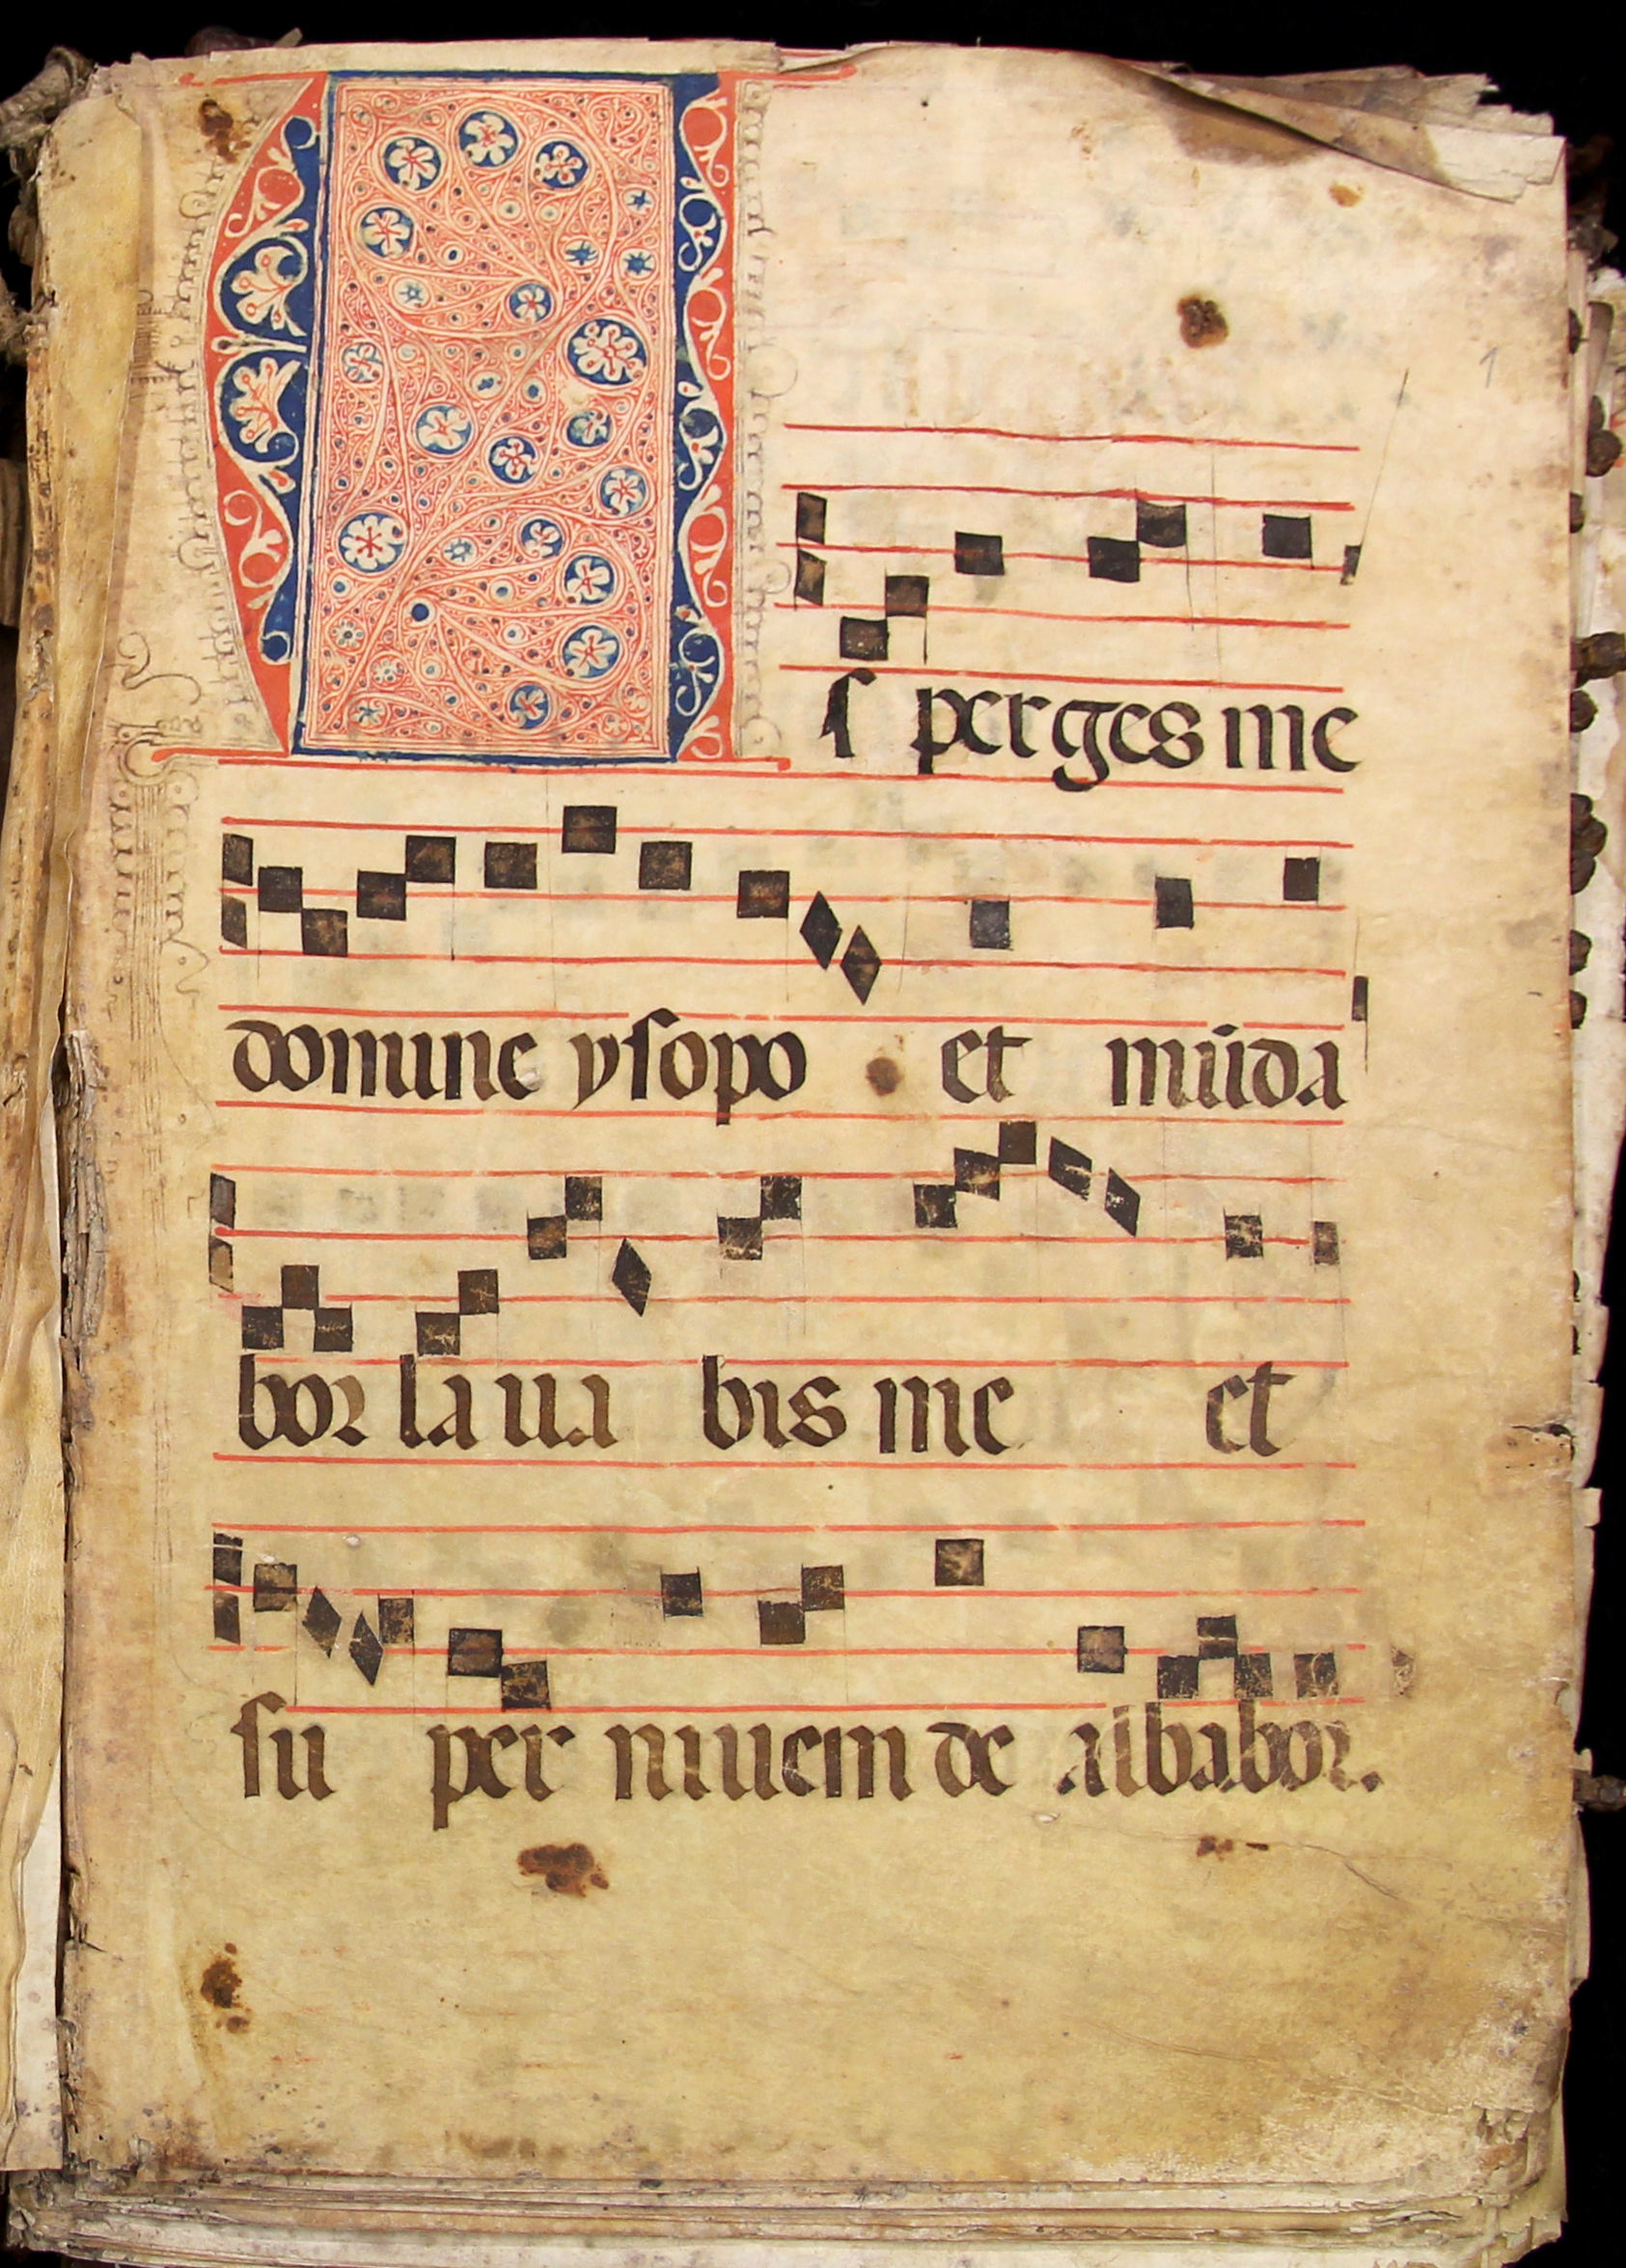 1
Aſ perges me
domine yſopo et mūda
bor laua bis me et
ſu per niuem de albabor.